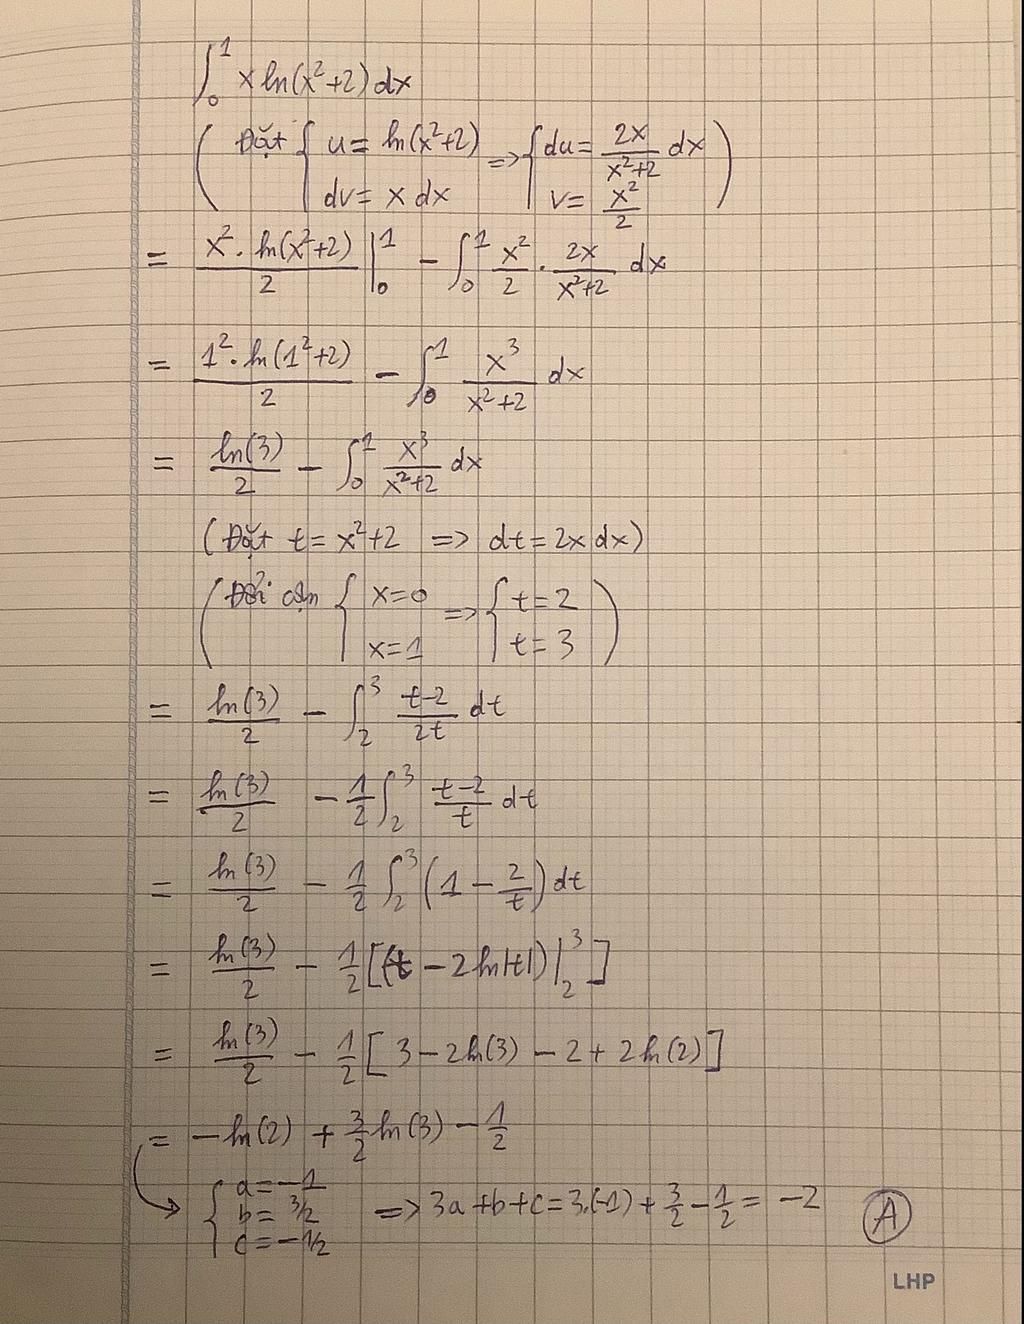 ∫₀¹ x ln(x²+2) dx
( Đặt { u = ln(x²+2) ; dv = x dx => { du = 2x/(x²+2) dx ; v = x²/2 )
= x² · ln(x²+2)/2 |₀¹ − ∫₀¹ x²/2 · 2x/(x²+2) dx
= 1² · ln(1²+2)/2 − ∫₀¹ x³/(x²+2) dx
= ln(3)/2 − ∫₀¹ x³/(x²+2) dx
(Đặt t = x²+2 => dt = 2x dx)
( Đổi cận { x=0 ; x=1 => { t=2 ; t=3 )
= ln(3)/2 − ∫₂³ (t−2)/(2t) dt
= ln(3)/2 − 1/2 ∫₂³ (t−2)/t dt
= ln(3)/2 − 1/2 ∫₂³ (1 − 2/t) dt
= ln(3)/2 − 1/2 [(t − 2ln|t|)|₂³]
= ln(3)/2 − 1/2 [3 − 2ln(3) − 2 + 2ln(2)]
= −ln(2) + 3/2 ln(3) − 1/2
{ a = −1 ; b = 3/2 ; c = −1/2 => 3a+b+c = 3.(-1) + 3/2 − 1/2 = −2 A
LHP